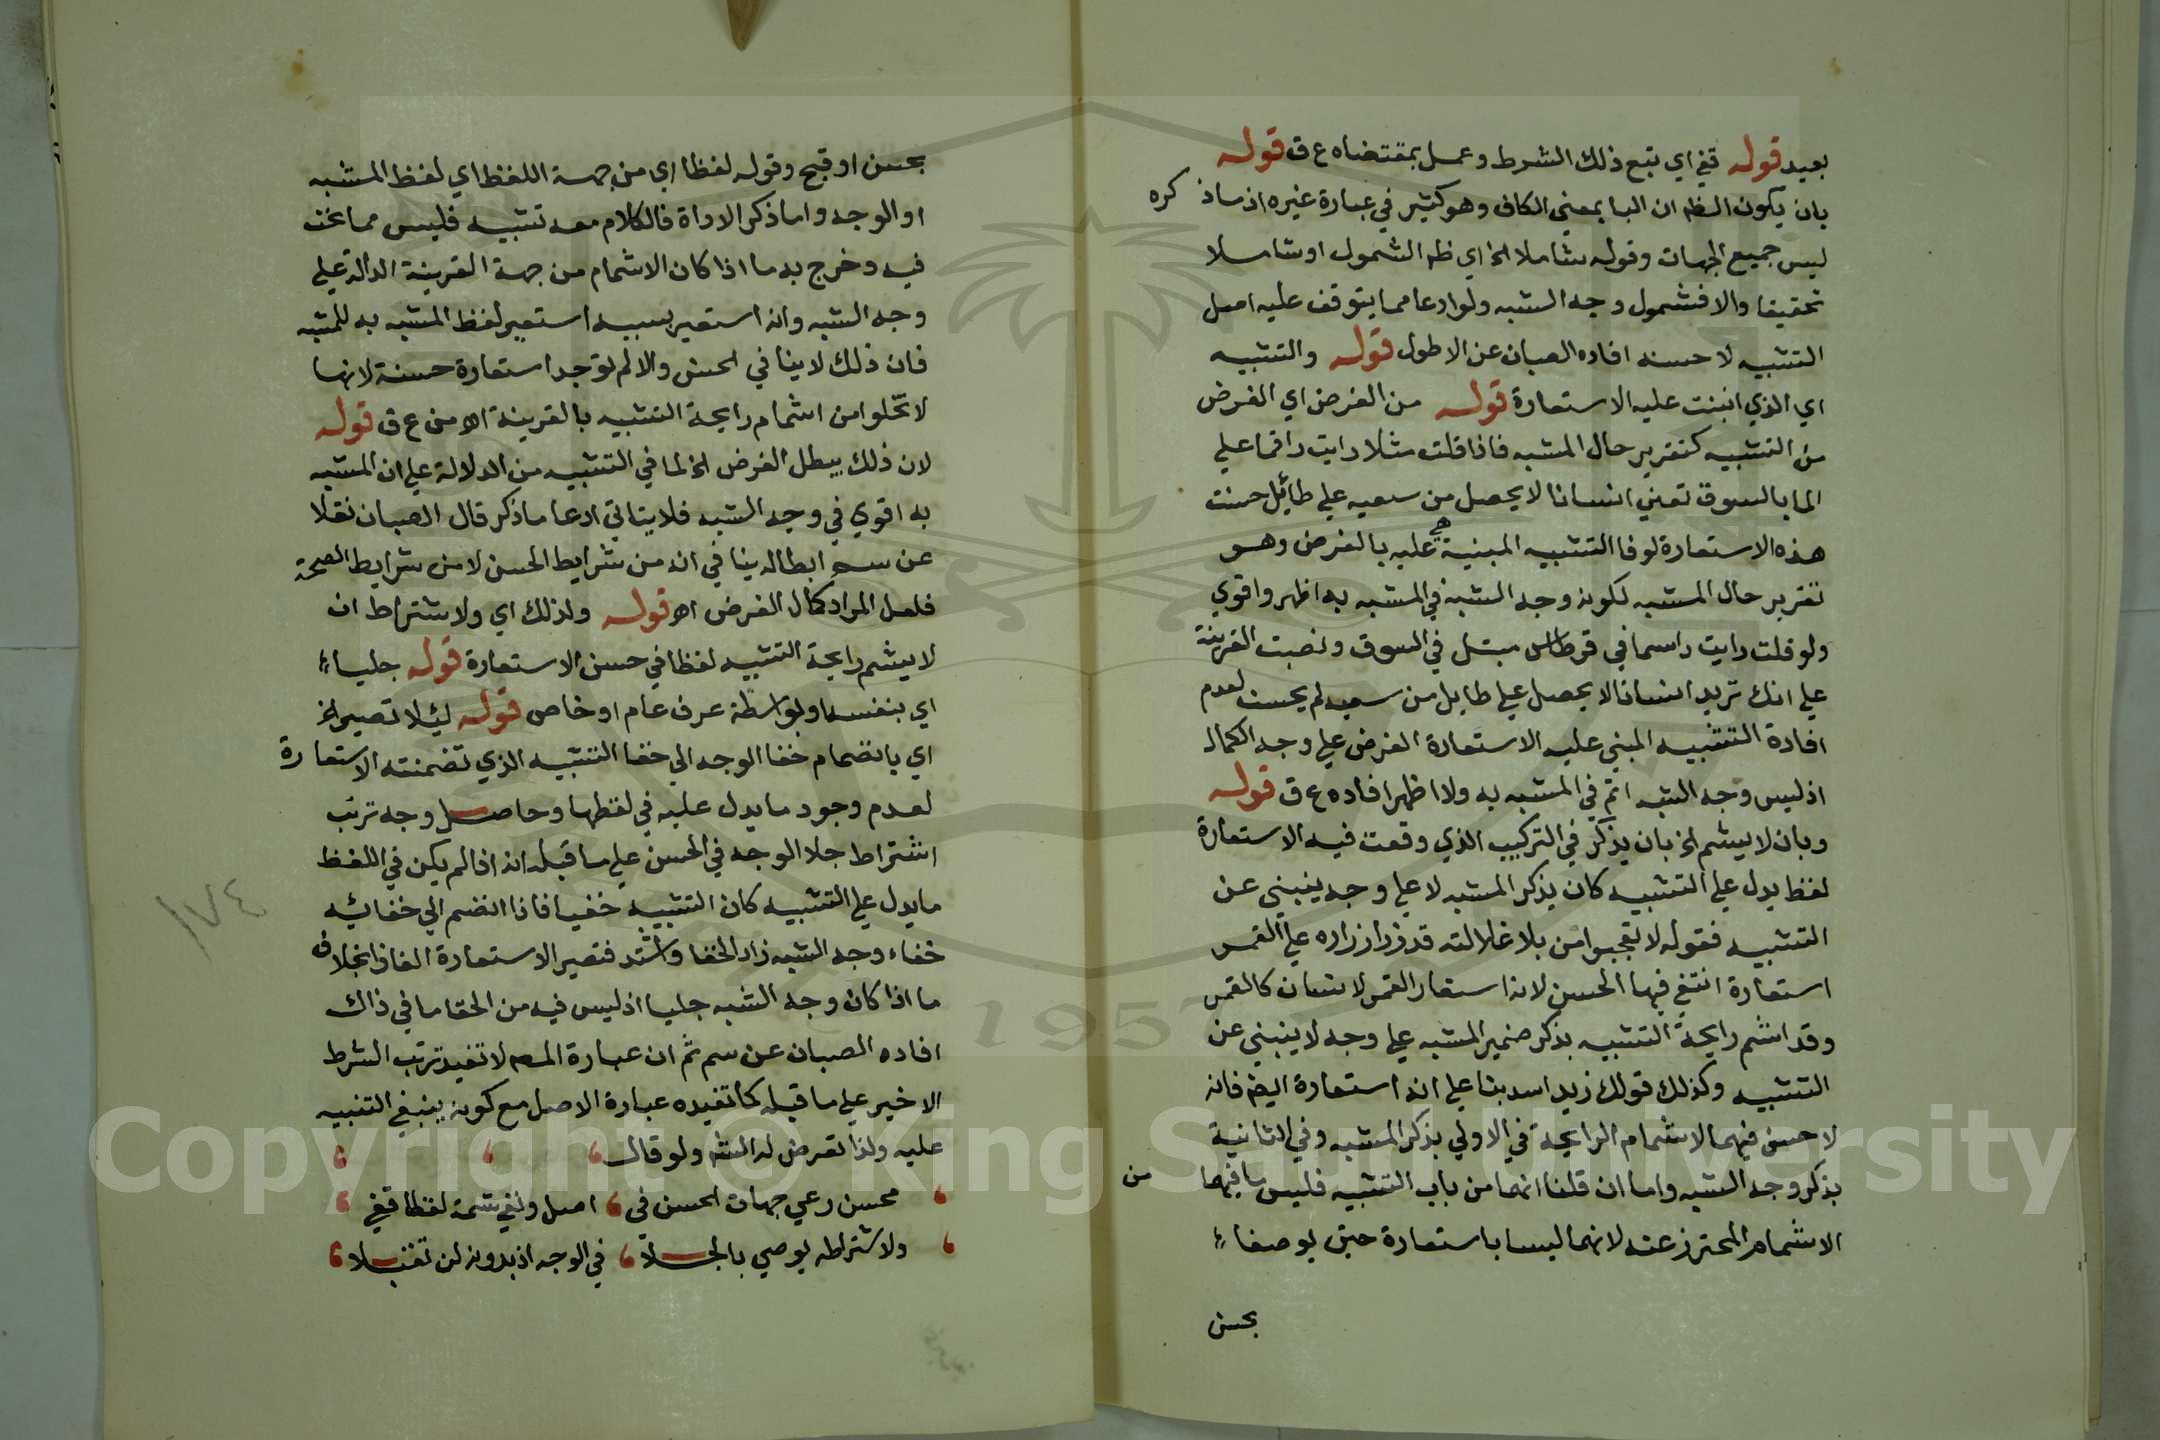 بعيد قوله قفي اي تبع ذلك الشرط وعمل بمقتضاه ع ق قوله
بان يكون الظه ان البا بمعني الكاف وهو كثير في عبارة غيره اذ ما ذكره
ليس جميع الجهات وقوله شاملا الخ اي ظه الشمول او شاملا
تحقيقا والا فشمول وجه الشبه ولو ادعا مما يتوقف عليه اصل
التشبيه لا حسنه افاده الصبان عن الاطول قوله والتشبيه
اي الذي انبنت عليه الاستعارة قوله من الغرض اي الغرض
من التشبيه كتقرير حال المشبه فاذا قلت مثلا رايت راقما علي
الما بالسوق تعني انسانا لا يحصل من سعيه علي طائل حسنت
هذه الاستعارة لوفا التشبيه المبنية هي عليه بالغرض وهو
تقرير حال المشبه لكون وجه الشبه في المشبه به اظهر واقوي
ولو قلت رايت راسما في قرطاس مبتل في السوق ونصبت القرينة
علي انك تريد انسانا لا يحصل علي طايل من سعيه لم يحسن لعدم
افادة التشبيه المبني عليه الاستعارة الغرض علي وجه الكمال
اذ ليس وجه الشبه اتم في المشبه به ولا اظهر افاده ع ق قوله
وبان لا يشم الخ بان يذكر في التركيب الذي وقعت فيه الاستعارة
لفظ يدل علي التشبيه كان يذكر المشبه لا علي وجه ينبني عن
التشبيه فقوله لا تعجبوا من بلا غلالته قد زر ازراره علي القمر
استعارة انتفي فيها الحسن لانه استعار القمر لانسان كالقمر
وقد اشم رايحة التشبيه بذكر ضمير المشبه علي وجه لا ينبني عن
التشبيه وكذلك قولك زيد اسد بنا علي انه استعارة ايضا فانه
لا حسن فيهما لاشمام الرايحة في الاولي بذكر المشبه وفي الثانية
بذكر وجه الشبه واما ان قلنا انهما من باب التشبيه فليس ما فيهما من
الاشمام المحترز عنه لانهما ليسا باستعارة حتي يوصفا
بحسن
بحسن او قبح وقوله لفظا اي من جهة اللفظ اي لفظ المشبه
او الوجه واما ذكر الاداة فالكلام معه تشبيه فليس مما نحن
فيه وخرج به ما اذا كان الاشمام من جهة القرينة الدالة علي
وجه الشبه وانه استعير بسببه استعير لفظ المشبه به للمشبه
فان ذلك لا ينافي الحسن والا لم توجد استعارة حسنة لانها
لا تخلوا من اشمام رايحة التشبيه بالقرينة اه من ع ق قوله
لان ذلك يبطل الغرض الخ لما في التشبيه من الدلالة علي ان المشبه
به اقوي في وجه الشبه فلا يتاتي ادعا ما ذكر قال الصبان نقلا
عن سم ابطاله ينافي انه من شرايط الحسن لا من شرايط الصحة
فلعل المراد كمال الغرض اه قوله ولذلك اي ولاشتراط ان
لا يشم رايحة التشبيه لفظا في حسن الاستعارة قوله جليا
اي بنفسه او بواسطة عرف عام او خاص قوله ليلا تصير الخ
اي بانضمام خفا الوجه الي خفا التشبيه الذي تضمنته الاستعارة
لعدم وجود ما يدل عليه في لفظها وحاصل وجه ترتب
اشتراط جلا الوجه في الحسن علي ما قبله انه اذا لم يكن في اللفظ
ما يدل علي التشبيه كان التشبيه خفيا فاذا انضم الي خفائه
خفاء وجه الشبه زاد الخفا واشتد فتصير الاستعارة الغازا بخلاف
ما اذا كان وجه الشبه جليا اذ ليس فيه من الخفا ما في ذاك
افاده الصبان عن سم ثم ان عبارة المص لا تفيد ترتب الشرط
الاخير علي ما قبله كما تفيده عبارة الاصل مع كونه ينبغي التنبيه
عليه ولذا تعرض له الشه ولو قال
محسن رعي جهات الحسن في اصل ونفي شمة لفظا قفي
ولاشتراطه يوصي بالجلا في الوجه اذ بدونه لن تقبلا
١٧٤
Copyright © King Saud University
1957